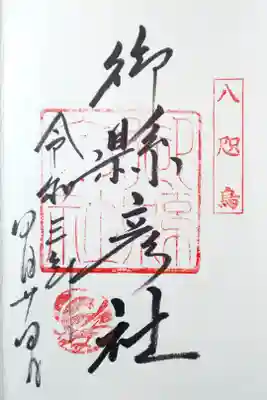 八咫烏
御縣彦社
令和三年
四月廿四日